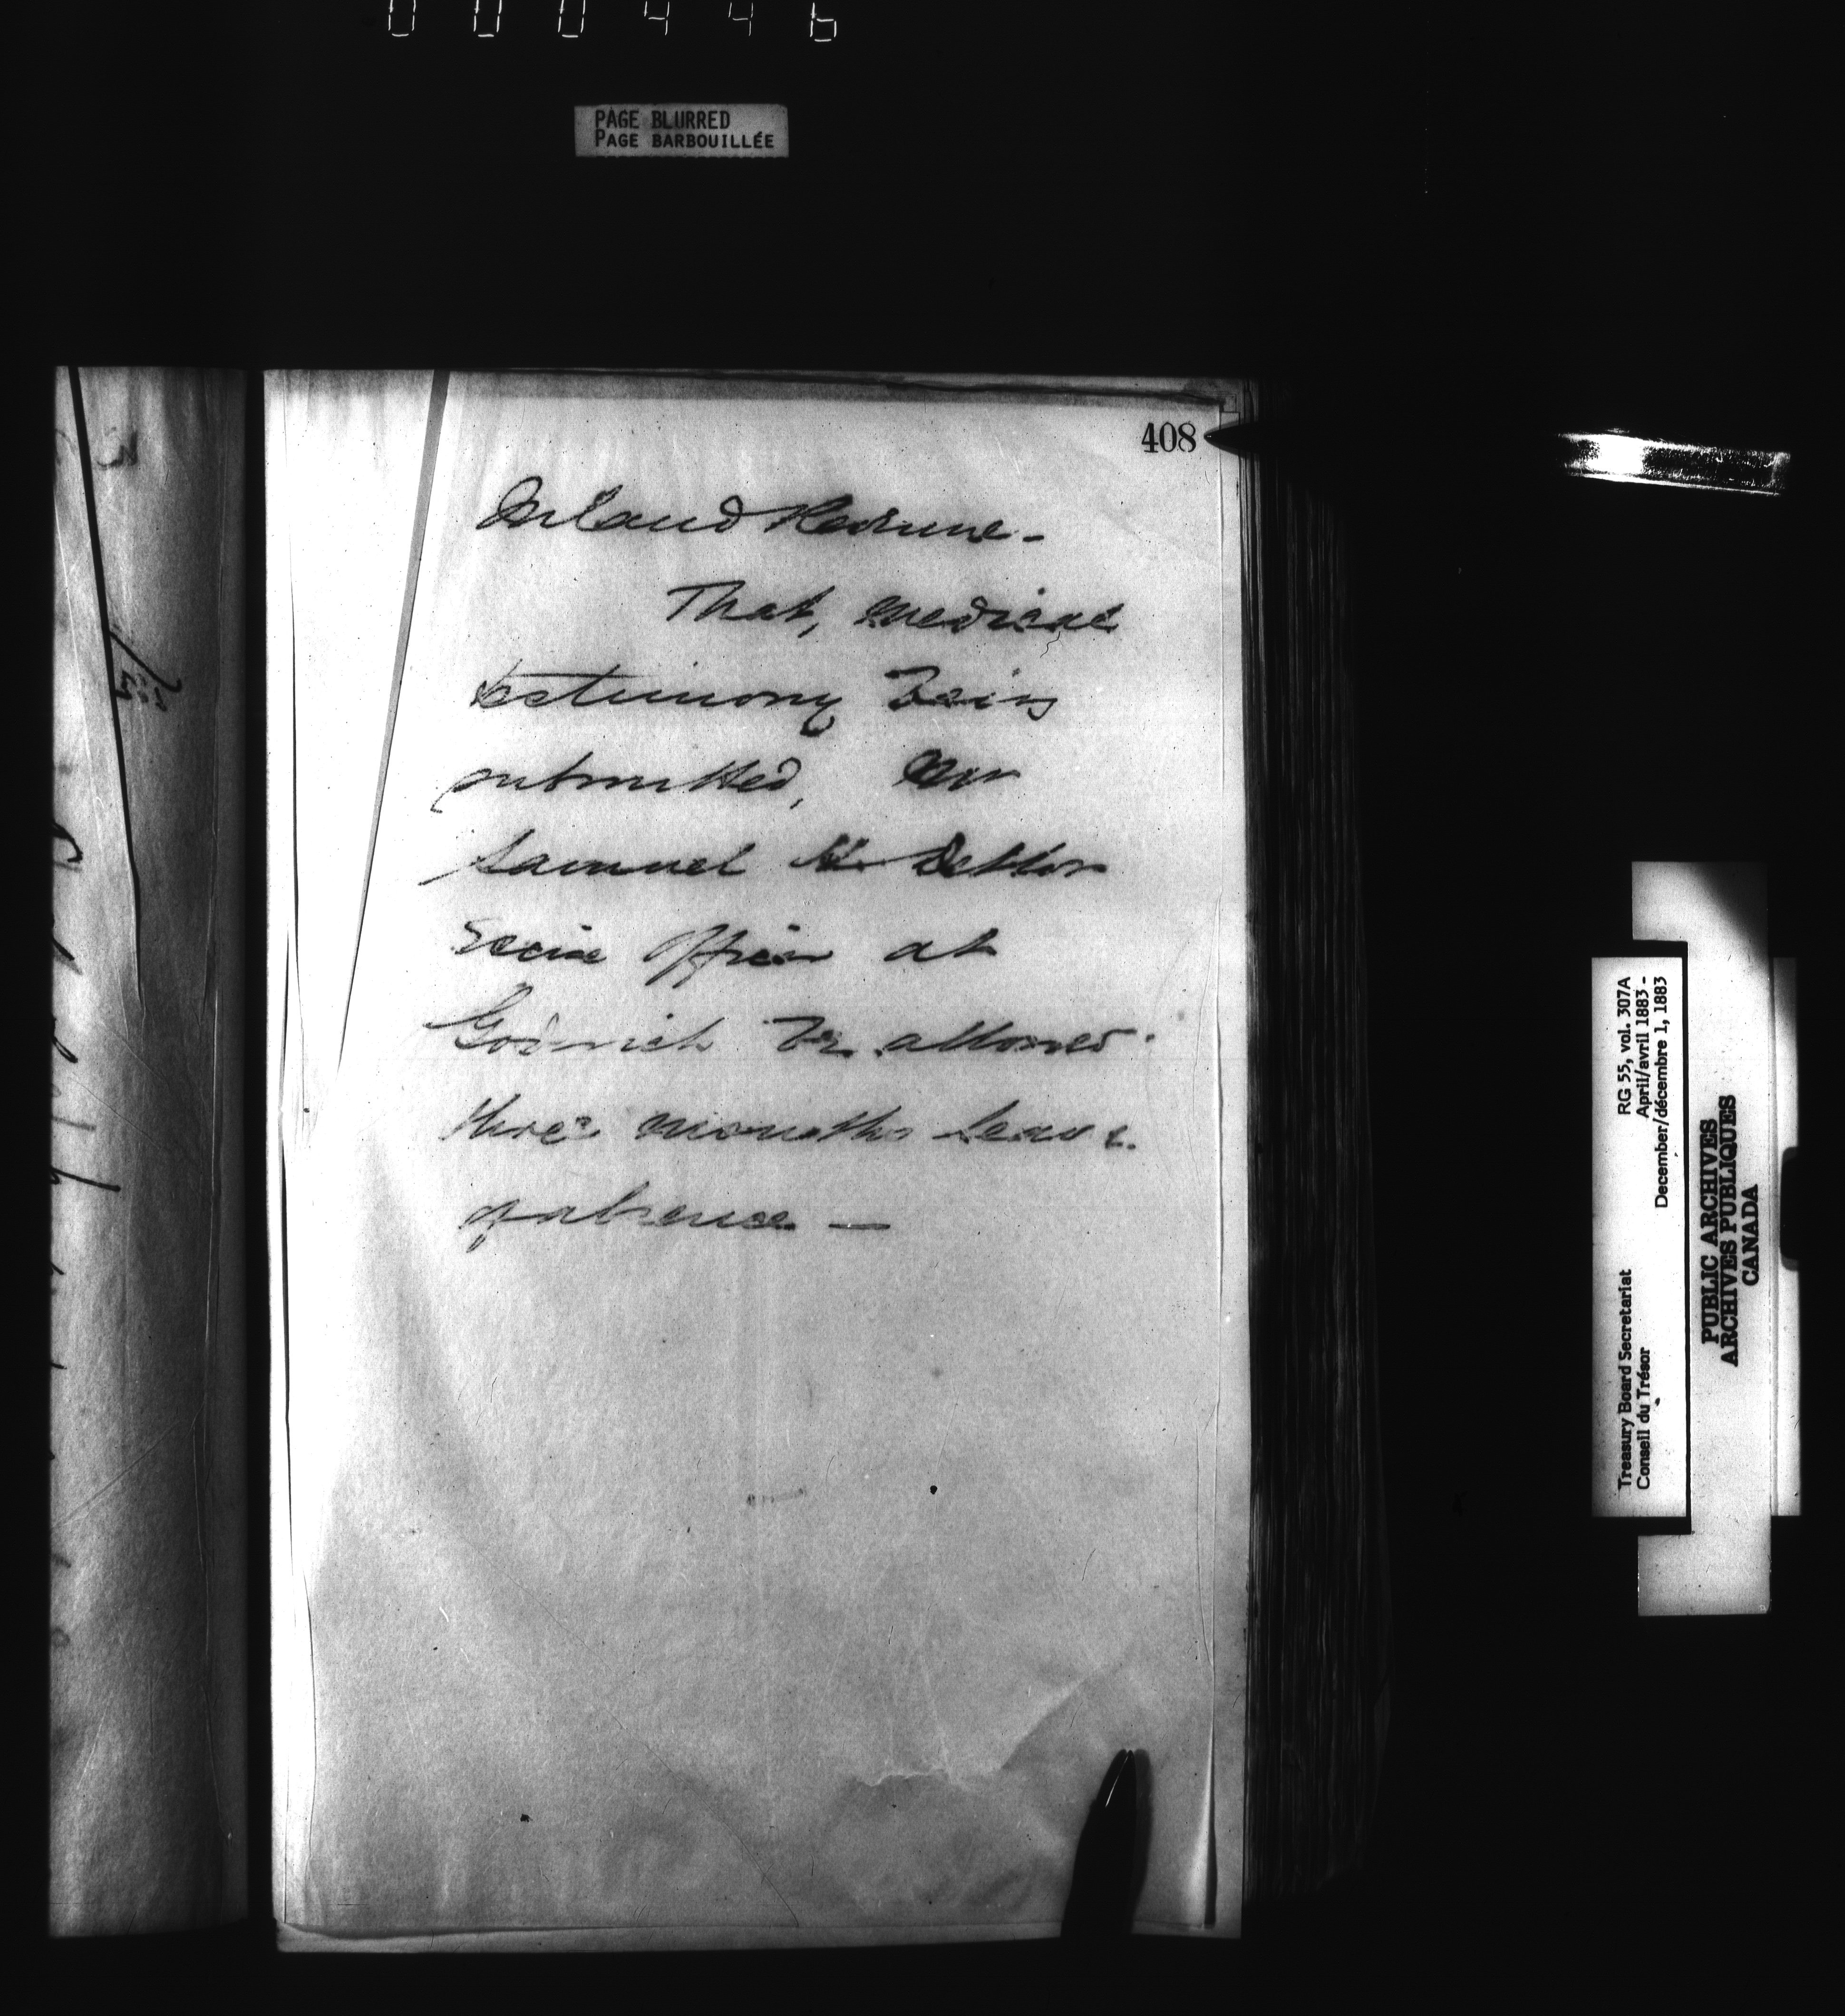 000446
PAGE BLURRED
PAGE BARBOUILLÉE
408
Inland Revenue -
That, medical
testimony being
submitted, Mr
Samuel H. Detlor
Excise Officer at
Goderich be allowed
three months leave
of absence —
RG 55, vol. 307A
April/avril 1883 -
December/décembre 1, 1883
Treasury Board Secretariat
Conseil du Trésor
PUBLIC ARCHIVES
ARCHIVES PUBLIQUES
CANADA